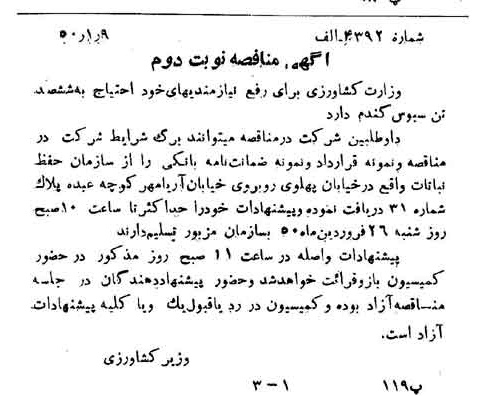 شماره ۴۳۹۲-الف ۹ر۱ر۵۰
آگهی مناقصه نوبت دوم
وزارت کشاورزی برای رفع نیازمندیهای خود احتیاج به ششصد
تن سبوس گندم دارد
داوطلبین شرکت در مناقصه میتوانند برگ شرایط شرکت در
مناقصه و نمونه قرارداد و نمونه ضمانت‌نامه بانکی را از سازمان حفظ
نباتات واقع در خیابان پهلوی روبروی خیابان آریامهر کوچه عبده پلاک
شماره ۳۱ دریافت نموده و پیشنهادات خود را حداکثر تا ساعت ۱۰ صبح
روز شنبه ۲۶ فروردین‌ماه ۵۰ بسازمان مزبور تسلیم دارند
پیشنهادات واصله در ساعت ۱۱ صبح روز مذکور در حضور
کمیسیون باز و قرائت خواهد شد و حضور پیشنهاد دهندگان در جلسه
مناقصه آزاد بوده و کمیسیون در رد یا قبول یک و یا کلیه پیشنهادات
آزاد است.
وزیر کشاورزی
پ۱۱۹ ۱-۳